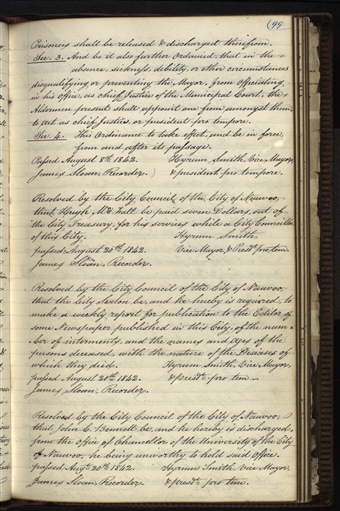 (99
Prisoners shall be released & discharged therefrom.
Sec. 3. And be it also further Ordained, that in the
absence, sickness, debility, or other circumstances
disqualifying or preventing the Mayor, from Officiating
in his Office, as chief Justice of the Municipal Court; the
Aldermen present shall appoint one from amongst them
to act as chief Justice, or president pro tempore.
Sec. 4. This Ordinance to take effect, and be in force,
from and after its passage.
Passed August 8th 1842. Hyrum Smith, Vice Mayor,
James Sloan, Recorder. & president pro tempore.
Resolved by the City Council of the City of Nauvoo,
that Hugh be paid seven Dollars, out of
the City Treasury, for his services while a City Councillor
of this City. Hyrum Smith,
passed August 20th 1842. Vice Mayor, & Prest. pro tem.
James Sloan, Recorder.
Resolved by the City Council of the City of Nauvoo,
that the City Sexton be, and he hereby is required, to
make a weekly report for publication to the Editor of
some Newspaper published in this City, of the num-
ber of interments, and the names and ages of the
persons deceased, with the nature of the Diseases of
which they died. Hyrum Smith, Vice Mayor,
passed August 20th 1842. & presdt. pro tem.
James Sloan, Recorder.
Resolved by the City Council of the City of Nauvoo,
that John C. Bennett be, and he hereby is discharged,
from the office of Chancellor of the University of the City
of Nauvoo, he being unworthy to hold said office.
passed Augt. 20th 1842. Hyrum Smith, Vice Mayor,
James Sloan, Recorder. & presdt. pro tem.